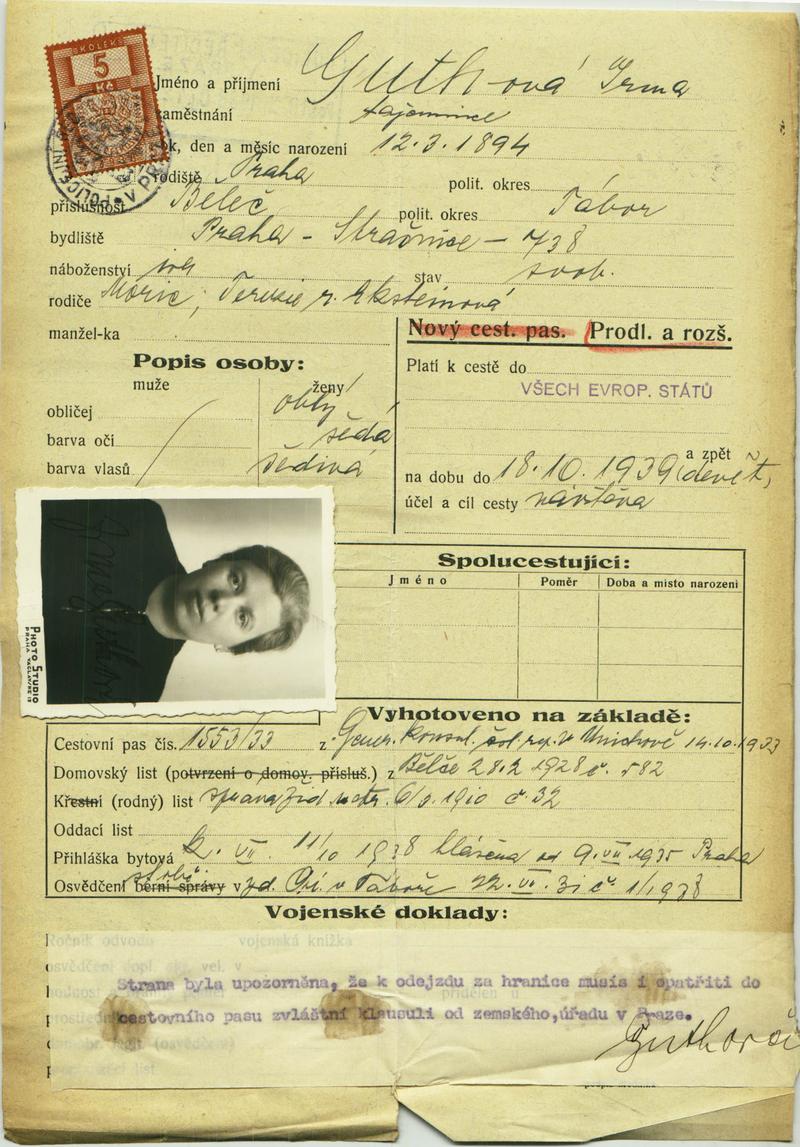 KOLEK
5
Kč
Jméno a příjmení Guthová Irma
zaměstnání tajemnice
rok, den a měsíc narození 12.3.1894
rodiště Praha polit. okres
příslušnost Běleč polit. okres Tábor
bydliště Praha - Strašnice - 738
náboženství stav svob.
rodiče Moric, Terezie r. Eksteinová
manžel-ka
Nový cest. pas. Prodl. a rozš.
Popis osoby:
muže ženy
obličej oblý
barva očí šedá
barva vlasů šedivá
Platí k cestě do
VŠECH EVROP. STÁTŮ
a zpět
na dobu do 18.10.1939 (devět)
účel a cíl cesty návštěva
Spolucestující:
Jméno Poměr Doba a místo narození
PHOTO STUDIO
PRAHA VÁCLAVSKÉ
Vyhotoveno na základě:
Cestovní pas čís. 1553/33 z Gener. konsul. čsl. rep. v Mnichově 14.10.1933
Domovský list (potvrzení o domov. přísluš.) z Běleče 28.2.1928 č. 582
Křestní (rodný) list správa žid. matr. 6/9.1910 č. 32
Oddací list
Přihláška bytová 2. VII. 11/10 1938 hlášena od 9.VII.1935 Praha
Osvědčení berní správy v 22. VI. 31 č. 1/1938
Vojenské doklady:
Ročník odvodu vojenská knížka
Strana byla upozorněna, že k odejzdu za hranice musís i opatřiti do
cestovního pasu zvláštní klausuli od zemského,úřadu v Praze.
Guthová